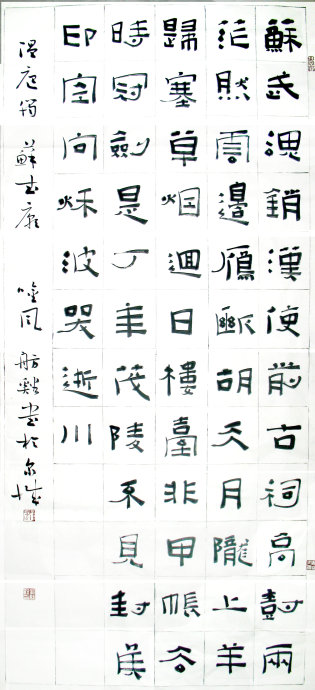 蘇武魂銷漢使前古祠高樹兩
茫然雲邊鴈斷胡天月隴上羊
歸塞草烟迴日樓臺非甲帳去
時冠劍是丁年茂陵不見封侯
印空向秋波哭逝川
溫庭筠 蘇武廟 於京城